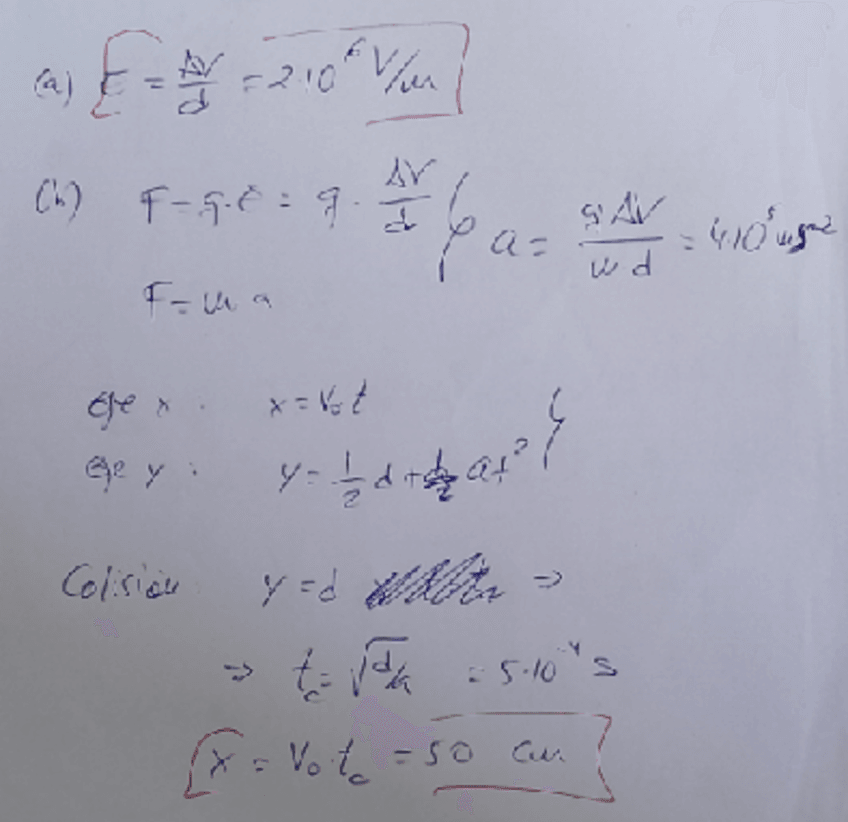 (a) E = ΔV/d = 2·10⁶ V/m
(b) F = q·E = q · ΔV/d } a = q ΔV / m d = 4·10⁵ ms⁻²
F = m a
eje x : x = V₀ t
eje y : y = 1/2 d + 1/2 a t² }
Colisión y = d ⇒
⇒ t_c = √(d/a) = 5·10⁻⁴ s
x = V₀ · t_c = 50 cm